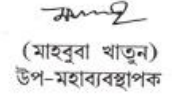 (মাহবুবা খাতুন)
উপ-মহাব্যবস্থাপক